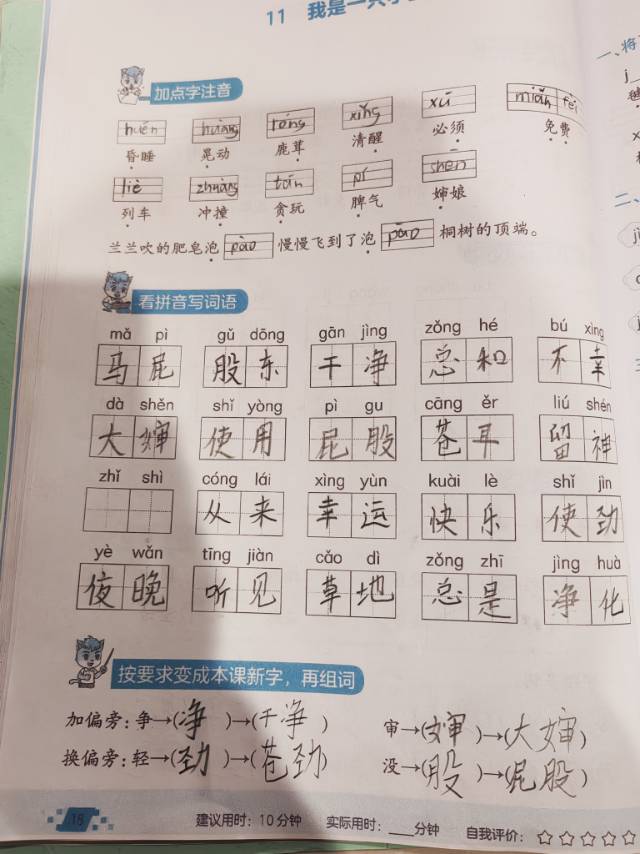 11 我是一只小
加点字注音
huēn huàng róng xǐng xū miǎn fèi
昏睡 晃动 鹿茸 清醒 必须 免费
liè zhuàng tān pí shěn
列车 冲撞 贪玩 脾气 婶娘
兰兰吹的肥皂泡 pào 慢慢飞到了泡 pāo 桐树的顶端。
看拼音写词语
mǎ pì gǔ dōng gān jìng zǒng hé bú xìng
马屁 股东 干净 总和 不幸
dà shěn shǐ yòng pì gu cāng ěr liú shén
大婶 使用 屁股 苍耳 留神
zhǐ shì cóng lái xìng yùn kuài lè shǐ jìn
从来 幸运 快乐 使劲
yè wǎn tīng jiàn cǎo dì zǒng zhī jìng huà
夜晚 听见 草地 总是 净化
按要求变成本课新字，再组词
加偏旁：争→(净)→(干净) 审→(婶)→(大婶)
换偏旁：轻→(劲)→(苍劲) 没→(股)→(屁股)
18 建议用时：10分钟 实际用时：____分钟 自我评价：☆☆☆☆☆
一、将
二、